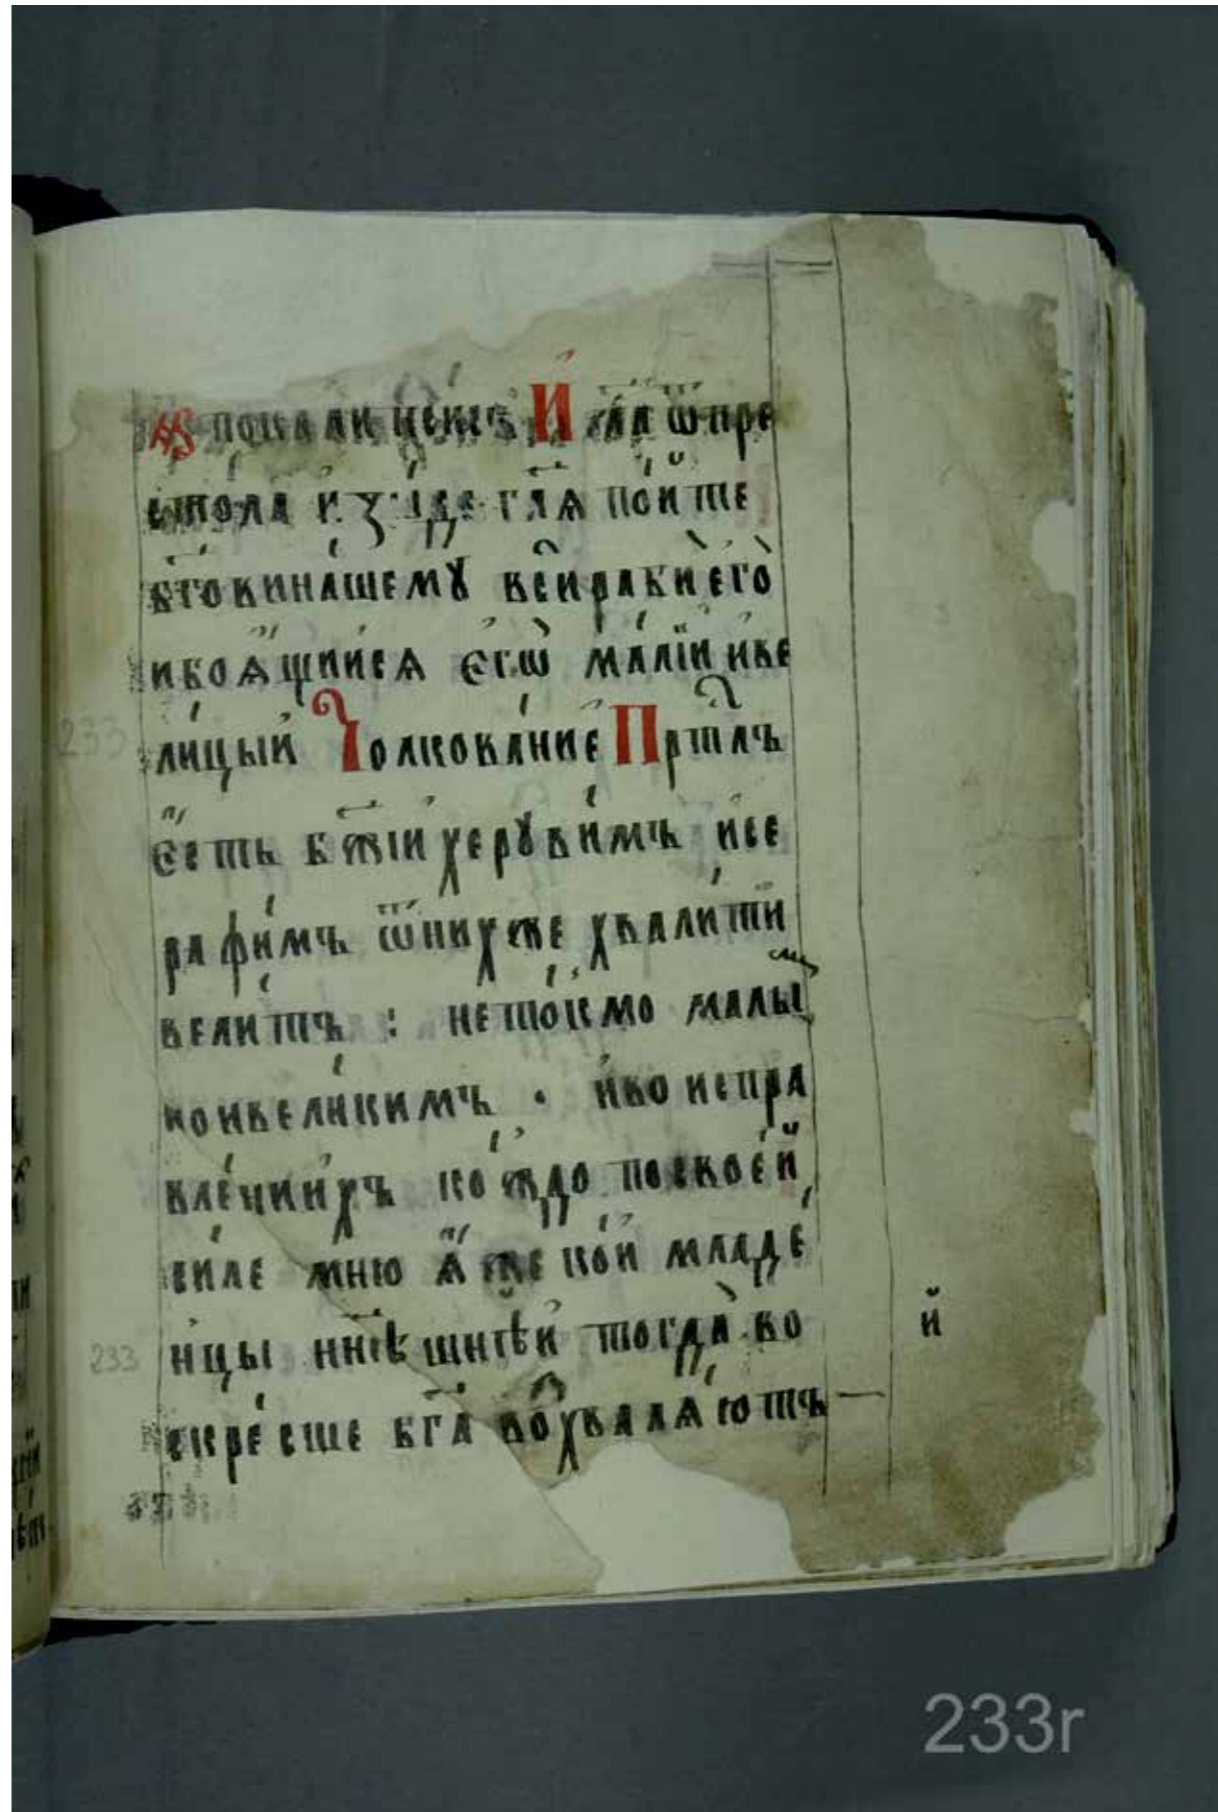 И гла ѿ пре
стола изыде гл҃ѧ пойте
бг҃ови нашемꙋ вси раби его
и боѧщиисѧ єгѡ малїи и ве
233
лицыи Толкование Прт҃лъ
єсть бж҃їи херꙋвимъ и се
рафимъ ѿ нихже хвалити
велитъ : нетокмо малы
но и великимъ · ико исправ
влении хъ кождо по своей
силе мню ѧже кои младе
233
нцы нн҃ѣшнѣи тогда во
й
скресше бг҃а возхвалѧютъ
233r